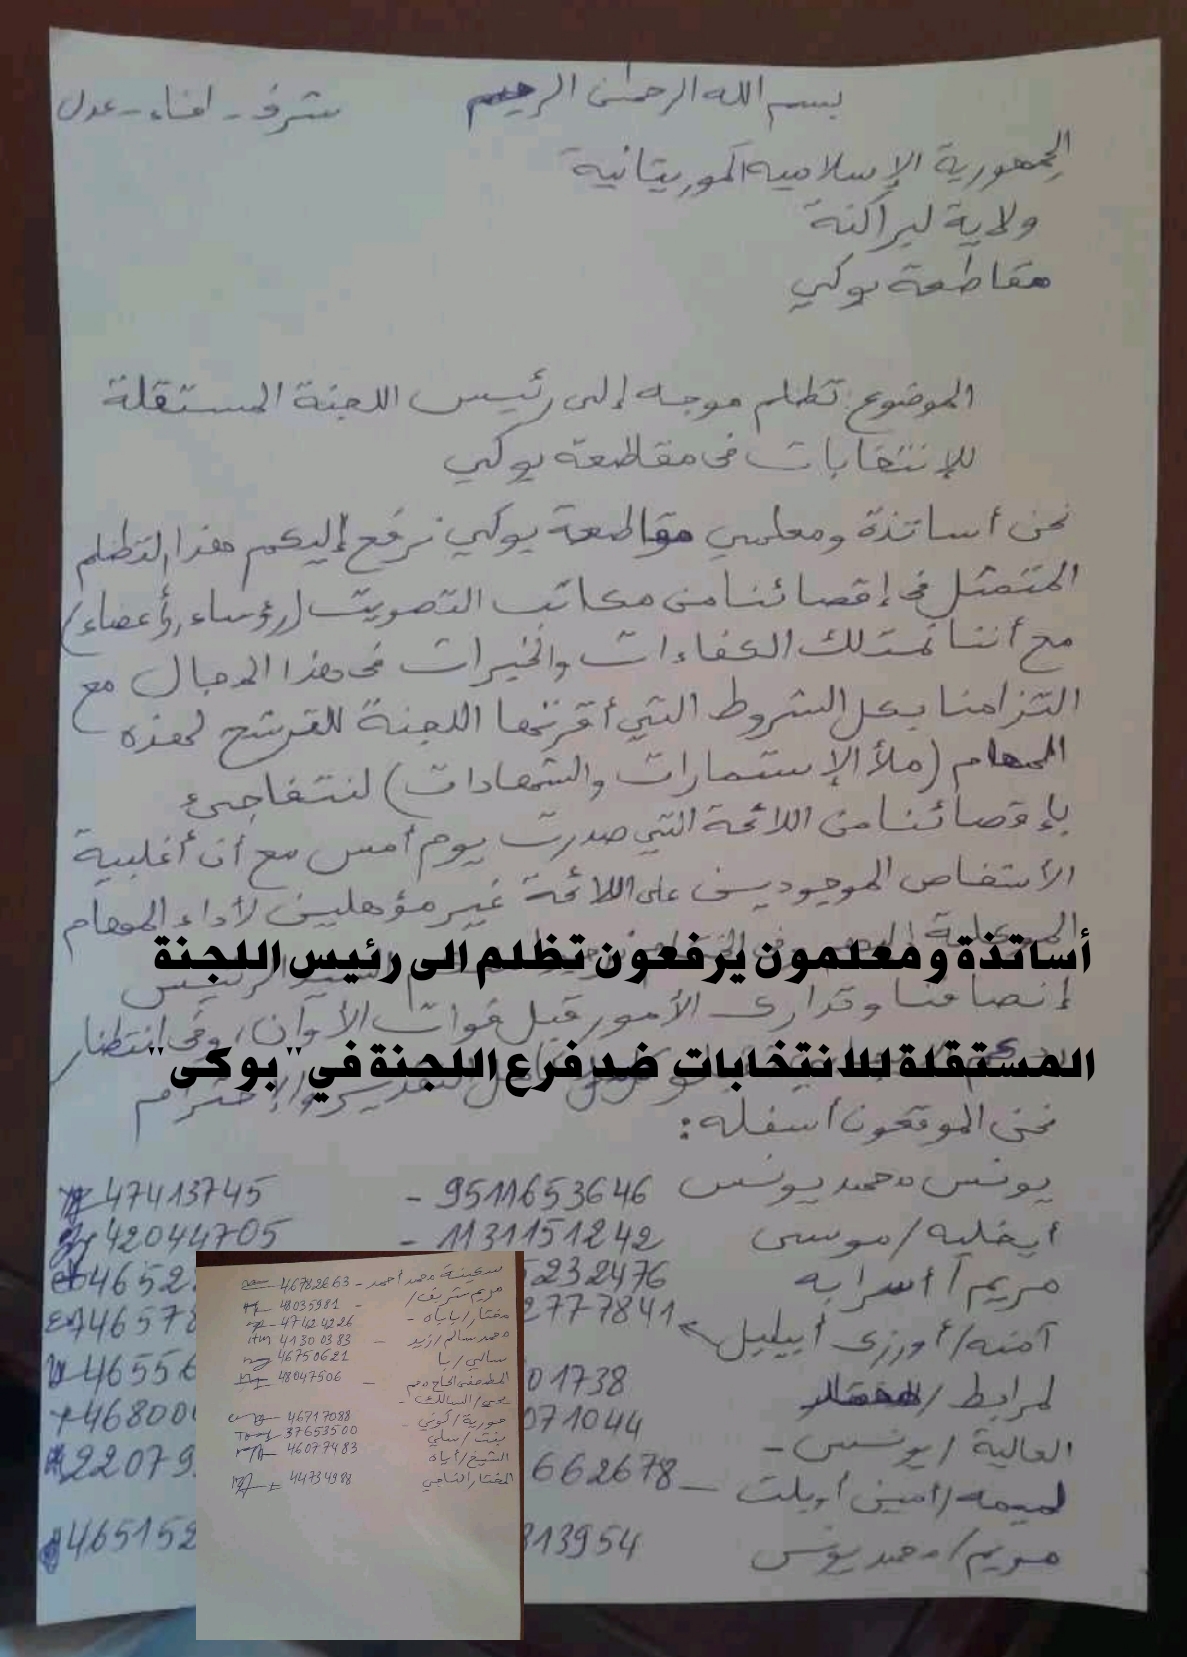 بسم الله الرحمن الرحيم
شرف - إخاء - عدل
الجمهورية الإسلامية الموريتانية
ولاية لبراكنة
مقاطعة بوكي
الموضوع: تظلم موجه إلى رئيس اللجنة المستقلة
للإنتخابات في مقاطعة بوكي
نحن أساتذة ومعلمي مقاطعة بوكي نرفع إليكم هذا التظلم
المتمثل في إقصائنا من مكاتب التصويت (رؤساء وأعضاء)
مع أننا نمتلك الكفاءات والخبرات في هذا المجال مع
التزامنا بكل الشروط التي أقرتها اللجنة للترشح لهذه
المهام (ملأ الإستمارات والشهادات) لنتفاجئ
بإقصائنا من اللائحة التي صدرت يوم أمس مع أن أغلبية
الأشخاص الموجودين على اللائحة غير مؤهلين لأداء المهام
أساتذة ومعلمون يرفعون تظلم الى رئيس اللجنة
إنصافنا وتدارك الأمور قبل فوات الأوان، وفي انتظار
المستقلة للانتخابات ضد فرع اللجنة في" بوكى "
التقدير والإحترام
نحن الموقعون أسفله:
يونس محمد يونس 9511653646 - 47413745
أيخليه / موسى 1131151242 - 42044705
مريم / أسرابه 5232476 4652
آمنه / أوزرى أبيليل 2777841 46578
لمرابط / 01738 46556
العالية / يونس - 071044 46800
لميمه / امين أوبلت - 662678 22079
مريم / محمد يونس 313954 465152
سكينة محمد أحمد - 46782663
مريم شريف / - 48035981
مختار / باباه - 47124226
محمد سالم / زيد - 41300383
سالي / با 46750621
المصطفى الحاج - 48047506
/ السالك -
حورية / كوني - 46717088
بنت / سلي - 37653500
الشيخ / أباه 46077483
المختار الناجي 44734988